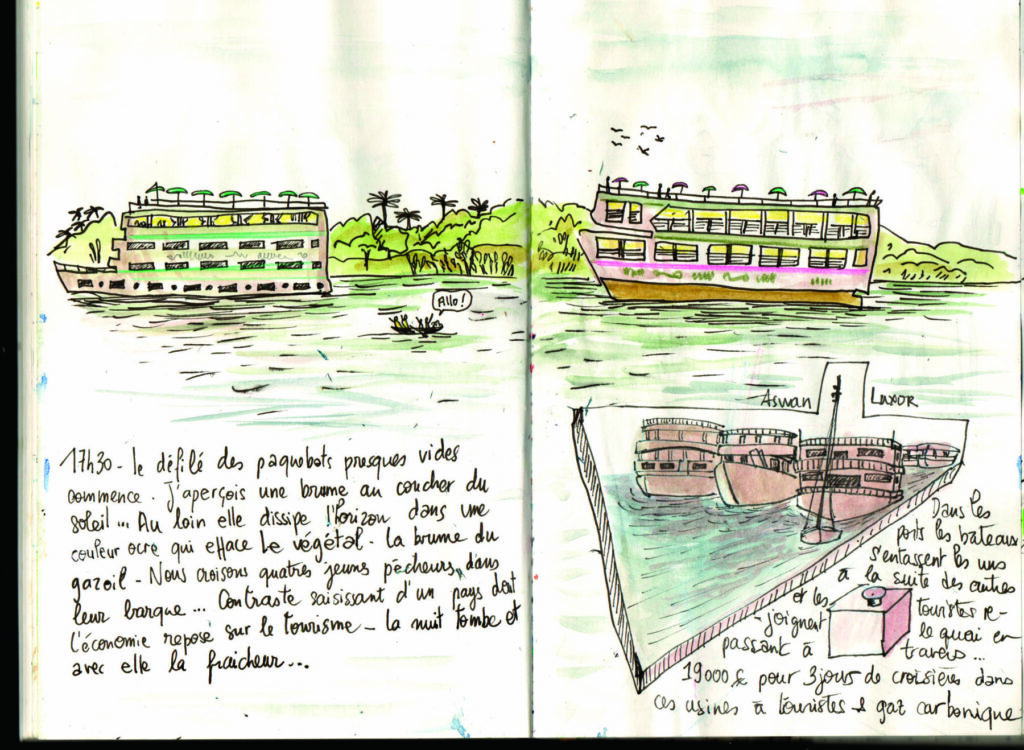 Allo!
Aswan Luxor
17h30 - le défilé des paquebots presques vides
commence. J'aperçois une brume au coucher du
soleil... Au loin elle dissipe l'horizon dans une
couleur ocre qui efface le végétal - la brume du
gazoil - Nous croisons quatres jeunes pêcheurs dans
leur barque... Contraste saisissant d'un pays dont
l'économie repose sur le tourisme - la nuit tombe et
avec elle la fraicheur...
Dans les
ports les bateaux
s'entassent les uns
à la suite des autres
et les touristes re-
-joignent le quai en
passant à travers...
19000 £ pour 3 jours de croisière dans
ces usines à touristes & gaz carbonique